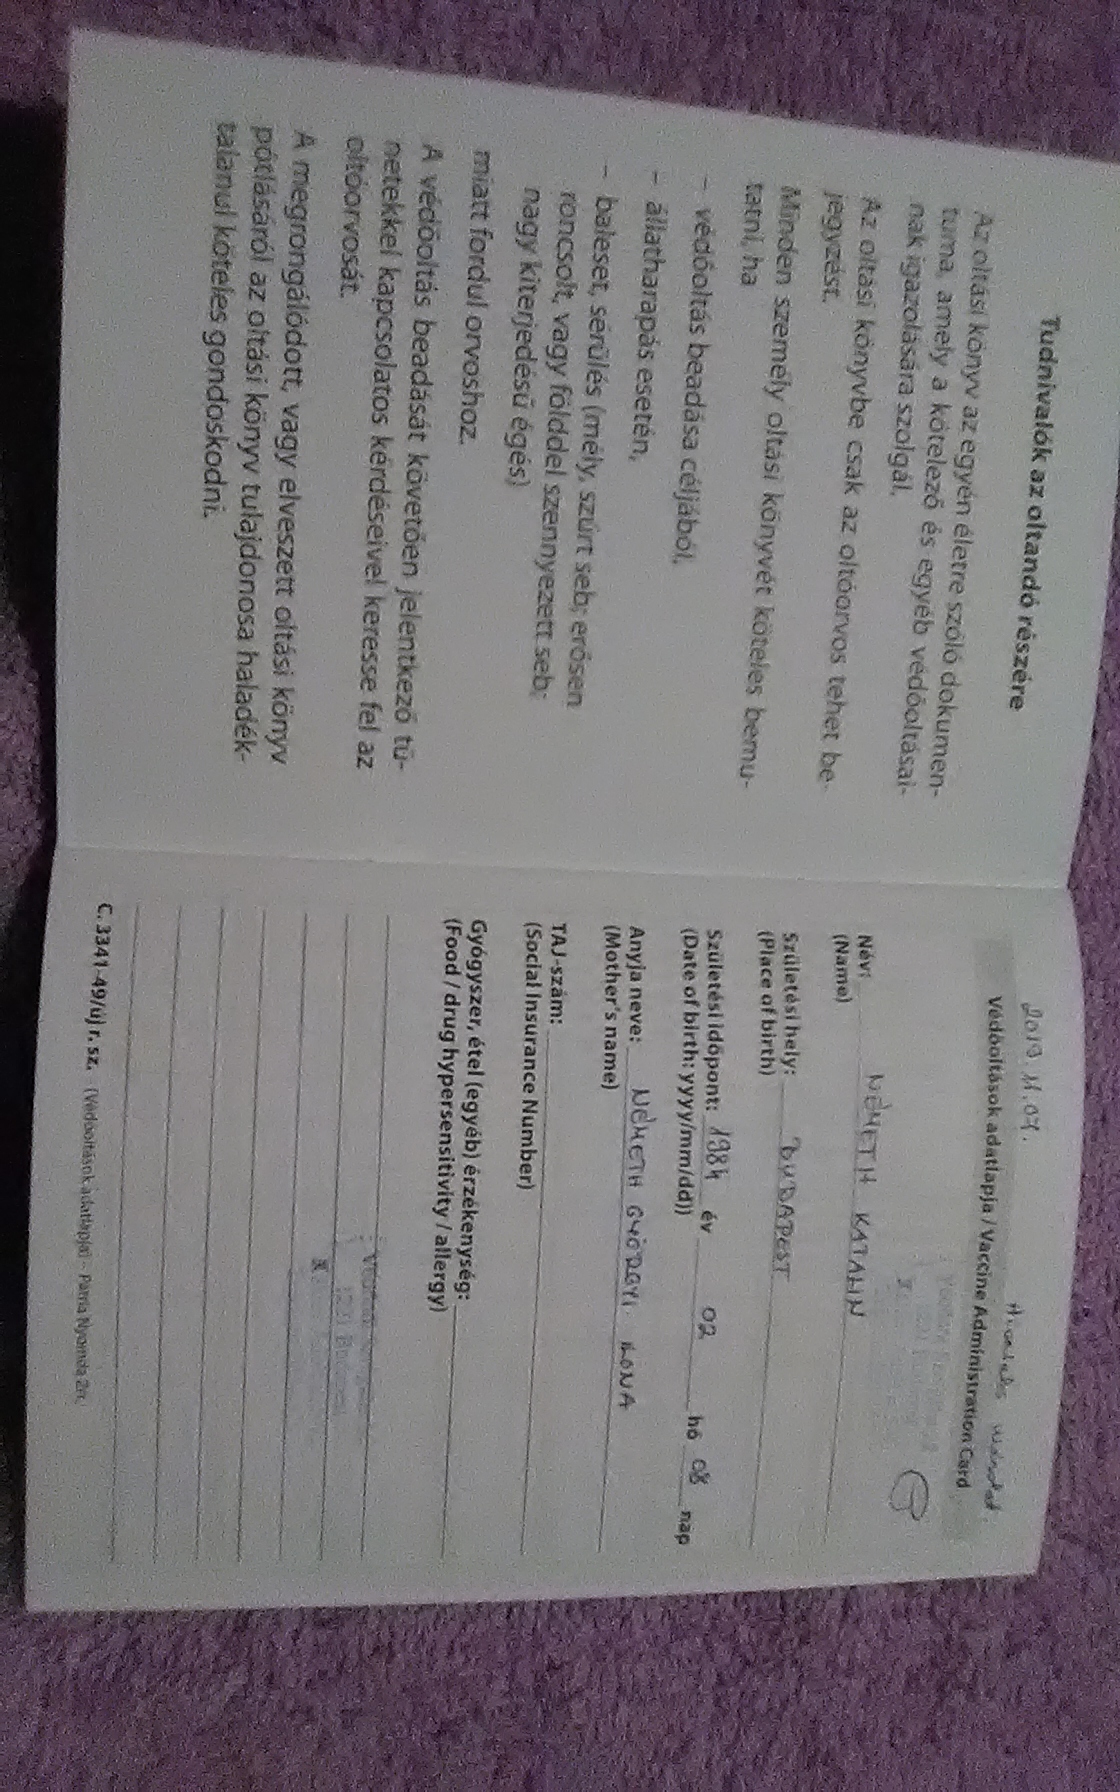 Tudnivalók az oltandó részére
Az oltási könyv az egyén életre szóló dokumen-
tuma, amely a kötelező és egyéb védőoltásai-
nak igazolására szolgál.
Az oltási könyvbe csak az oltóorvos tehet be-
jegyzést.
Minden személy oltási könyvét köteles bemu-
tatni, ha
- védőoltás beadása céljából,
- állatharapás esetén,
- baleset, sérülés (mély, szúrt seb; erősen
roncsolt, vagy földdel szennyezett seb;
nagy kiterjedésű égés)
miatt fordul orvoshoz.
A védőoltás beadását követően jelentkező tü-
netekkel kapcsolatos kérdéseivel keresse fel az
oltóorvosát.
A megrongálódott, vagy elveszett oltási könyv
pótlásáról az oltási könyv tulajdonosa haladék-
talanul köteles gondoskodni.
2019.11.07.
Védőoltások adatlapja / Vaccine Administration Card
Név: NÉMETH KATALIN
(Name)
Születési hely: BUDAPEST
(Place of birth)
Születési időpont: 1984 év 02 hó 08 nap
(Date of birth: yyyy/mm/dd))
Anyja neve: NÉMETH GYÖRGYI ILONA
(Mother's name)
TAJ-szám:
(Social Insurance Number)
Gyógyszer, étel (egyéb) érzékenység:
(Food / drug hypersensitivity / allergy)
C. 3341-49/új r. sz. (Védőoltások adatlapja) – Pátria Nyomda Zrt.